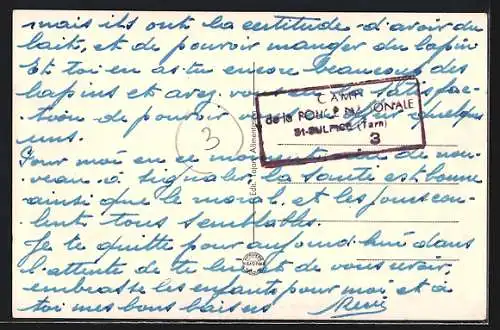 mais ils ont la certitude d'avoir du
lait, et de pouvoir manger du lapin
Et toi en as tu encore beaucoup des
lapins et avez vous la satisfac-
tion de pouvoir quelques
uns.
Pour moi en ce moment rien de nou-
veau à signaler la santé est bonne
ainsi que le moral, et les jours cou-
lent tous semblables.
Je te quitte pour aujourd'hui dans
l'attente de te lire et de vous revoir,
embrasse les enfants pour moi et à
toi mes bons baisers René
CAMP
de la POLICE NATIONALE
St-SULPICE (Tarn)
3
3